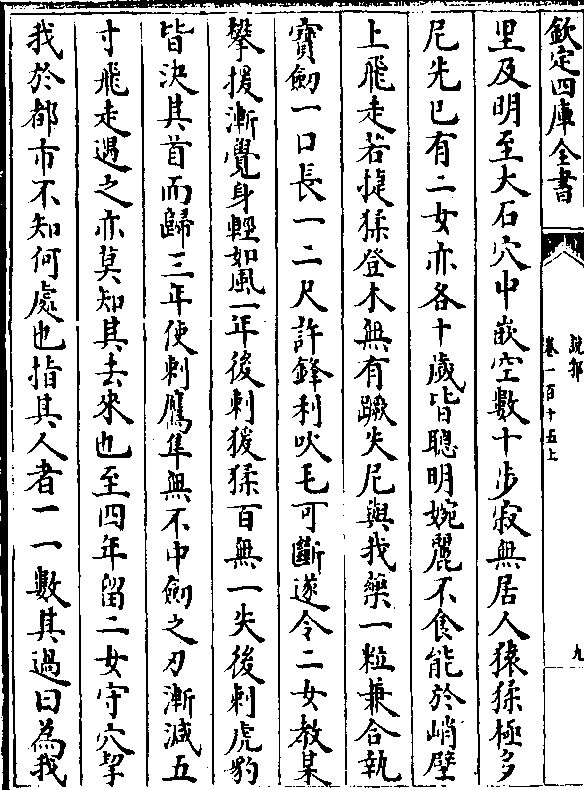 欽定四庫全書
說郛
卷一百十五上
九
里及明至大石穴中嵌空數十步寂無居人猿猱極多
尼先已有二女亦各十歲皆聰明婉麗不食能於峭壁
上飛走若捷猱登木無有蹶失尼與我藥一粒兼令執
寶劒一口長一二尺許鋒利吹毛可斷遂令二女教某
攀援漸覺身輕如風一年後刺猨猱百無一失後刺虎豹
皆決其首而歸三年使刺鷹隼無不中劒之刃漸減五
寸飛走遇之亦莫知其去來也至四年留二女守穴挈
我於都市不知何處也指其人者一一數其過曰為我